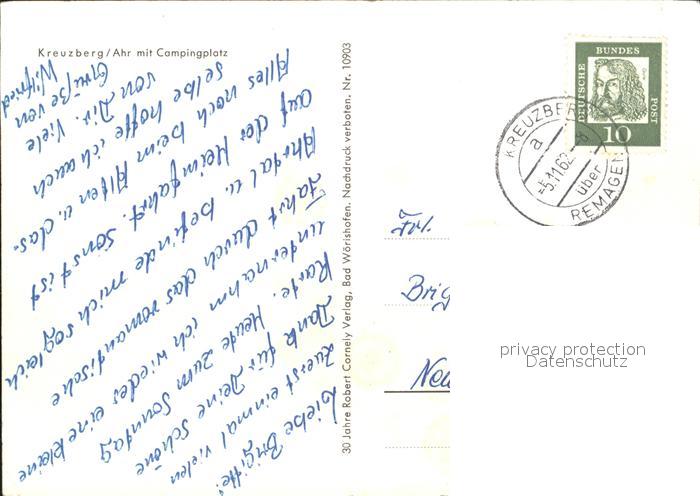 Kreuzberg/Ahr mit Campingplatz
Liebe Brigitte!
Zuerst einmal vielen
Dank für Deine schöne
Karte. Heute zum Sonntag
unternahm ich wieder eine kleine
Fahrt durch das romantische
Ahrtal u. befinde mich sogleich
auf der Heimfahrt. Sonst ist
Alles noch beim Alten u. das-
selbe hoffe ich auch
von Dir. Viele
Grüße von
Wilfried
30 Jahre Robert Cornely Verlag, Bad Wörishofen. Nachdruck verboten. Nr. 10903
DEUTSCHE
BUNDES
POST
10
KREUZBERG
a
-5.11.62
über
REMAGEN
Frl.
Brig
Neu
privacy protection
Datenschutz